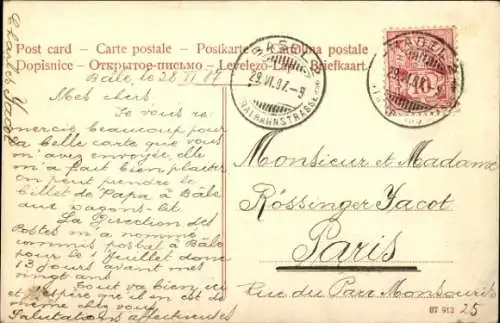 Post card – Carte postale – Postkarte – Cartolina postale
Dopisnice – Открытое письмо – Levelező – Briefkaart.
Bâle, le 28 VI 07
Mes chers,
Je vous re-
mercie beaucoup pour
la belle carte que vous
m'avez envoyée, elle
m'a fait bien plaisir
on peut prendre le
billet de Papa à Bâle
aux wagons-lit.
La Direction des
Postes m'a nommé
commis postal à Bâle
pour le 1 Juillet donc
13 jours avant mes
vingt ans
Tout va bien ici
et j'espère que il en est de
même chez vous
Salutations affectueuses
Charles
BASEL
29.VI.07.-9
10
29.VI.07
Monsieur et Madame
Rössinger Jacot
Paris
Rue du Parc Montsouris
25
07 912